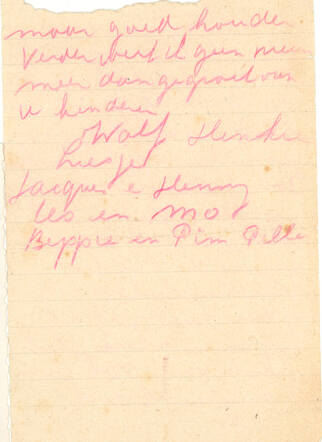 maar goed houden.
Verder weet ik geen nieuws
meer dan gegroet van
u kinderen
Wolf Henki
Liesje
Jacques e Henny
Les en Mo
Beppie en Pim Pelle